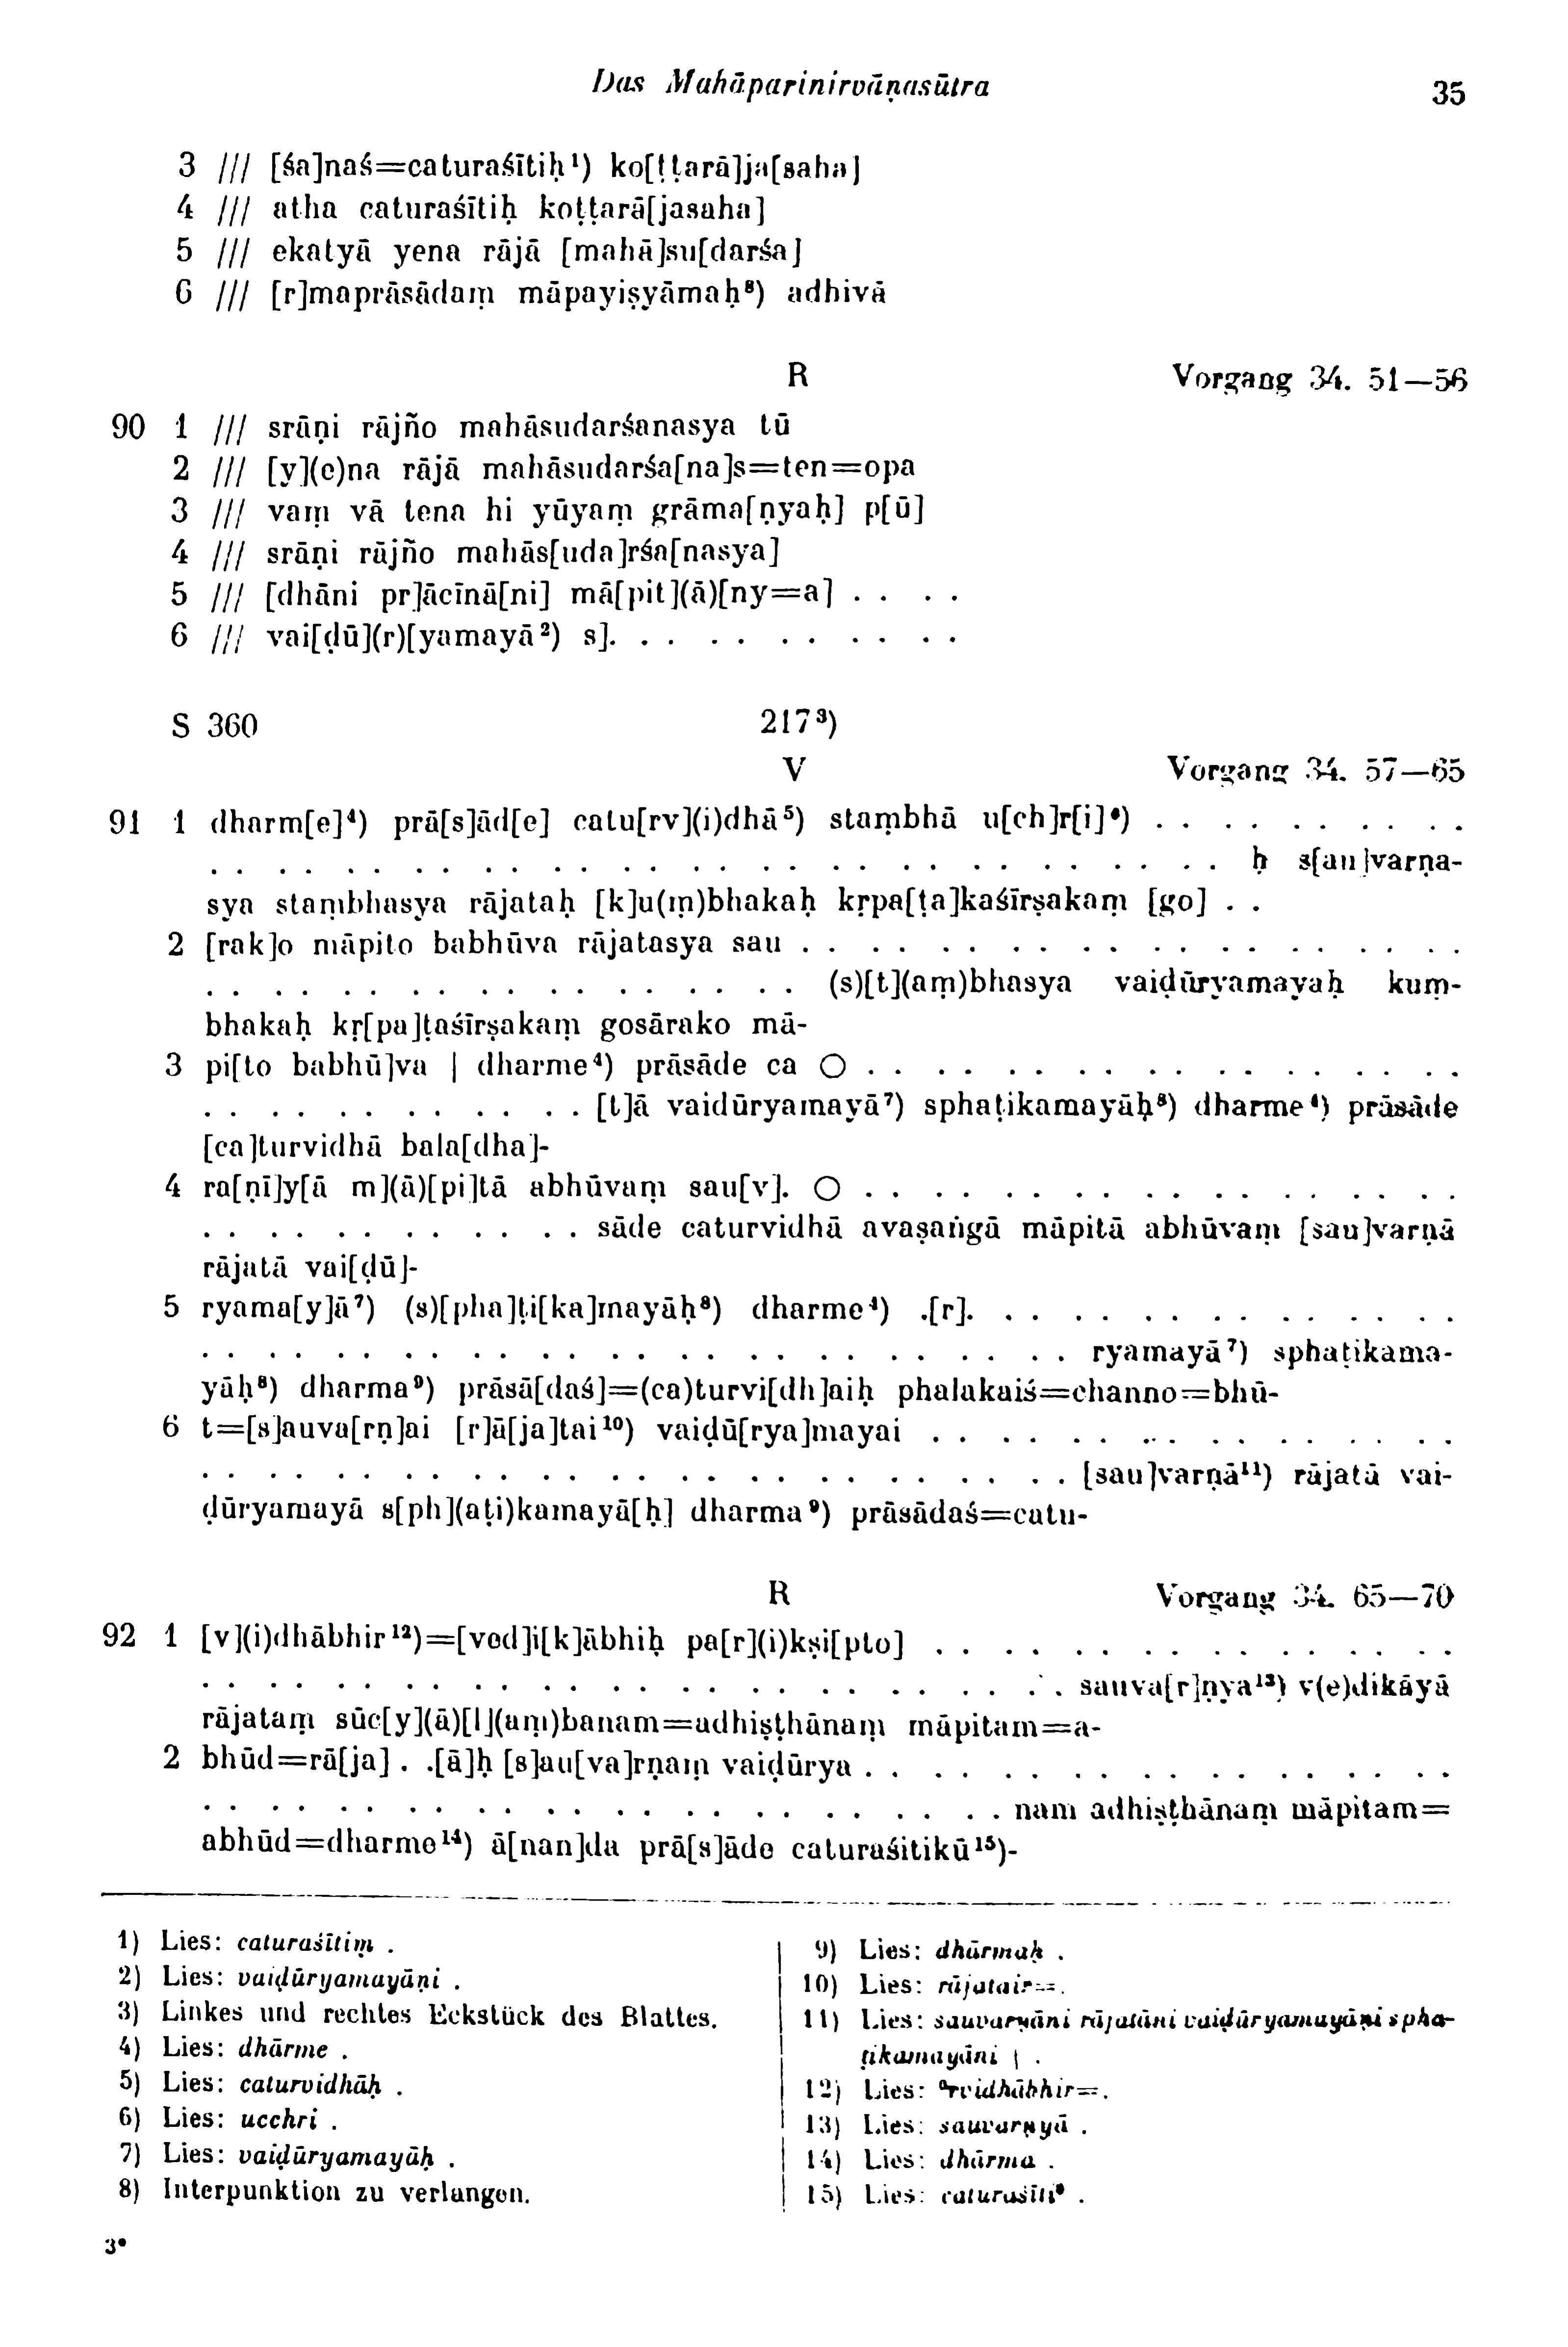 Das Mahāparinirvāṇasūtra 35
3 /// [śa]naś=caturaśītiḥ¹) ko[ṭṭarā]ja[saha]
4 /// atha caturaśītiḥ koṭṭarā[jasaha]
5 /// ekatyā yena rājā [mahā]su[darśa]
6 /// [r]maprāsādaṃ māpayiṣyāmaḥ⁸) adhivā
R Vorgang 34. 51—56
90 1 /// srāṇi rājño mahāsudarśanasya tū
2 /// [y](e)na rājā mahāsudarśa[na]s=ten=opa
3 /// vaṃ vā tena hi yūyaṃ grāma[ṇyaḥ] p[ū]
4 /// srāṇi rājño mahās[uda]rśa[nasya]
5 /// [dhāni pr]ācīnā[ni] mā[pit](ā)[ny=a] . . . .
6 /// vai[ḍū](r)[yamayā²) s]. . . . . . . . . . .
S 360 217³)
V Vorgang 34. 57—65
91 1 dharm[e]⁴) prā[s]ād[e] catu[rv](i)dhā⁵) stambhā u[ch]r[i]⁶) . . . . . . . . . .
. . . . . . . . . . . . . . . . . . . . . . . . . . . . . . ḥ s[au]varṇa-
sya stambhasya rājataḥ [k]u(ṃ)bhakaḥ kṛpa[ṭa]kaśīrṣakaṃ [go] . .
2 [rak]o māpito babhūva rājatasya sau . . . . . . . . . . . . . . . . . . .
. . . . . . . . . . . . . . . . . . (s)[t](aṃ)bhasya vaiḍūryamayaḥ kuṃ-
bhakaḥ kṛ[pa]ṭaśīrṣakaṃ gosārako mā-
3 pi[to babhū]va | dharme⁴) prāsāde ca ○ . . . . . . . . . . . . . . . . . .
. . . . . . . . . . . . [t]ā vaidūryamayā⁷) sphaṭikamayāḥ⁸) dharme⁴) prāsāde
[ca]turvidhā bala[dha]-
4 ra[ṇī]y[ā m](ā)[pi]tā abhūvaṃ sau[v]. ○ . . . . . . . . . . . . . . . . . .
. . . . . . . . . . . . sāde caturvidhā avaṣaṅgā māpitā abhūvaṃ [sau]varṇā
rājatā vai[ḍū]-
5 ryama[y]ā⁷) (s)[pha]ṭi[ka]mayāḥ⁸) dharme⁴) .[r]. . . . . . . . . . . . . . .
. . . . . . . . . . . . . . . . . . . . . . . . . . ryamayā⁷) sphaṭikama-
yāḥ⁸) dharma⁹) prāsā[daś]=(ca)turvi[dh]aiḥ phalakaiś=channo=bhū-
6 t=[s]auva[rṇ]ai [r]ā[ja]tai¹⁰) vaiḍū[rya]mayai . . . . . . . . . . . . . . . .
. . . . . . . . . . . . . . . . . . . . . . . . . . [sau]varṇā¹¹) rājatā vai-
ḍūryamayā s[ph](aṭi)kamayā[ḥ] dharma⁹) prāsādaś=catu-
R Vorgang 34. 65—70
92 1 [v](i)dhābhir¹²)=[ved]i[k]ābhiḥ pa[r](i)kṣi[pto] . . . . . . . . . . . . . . . .
. . . . . . . . . . . . . . . . . . . . . . . . . . sauva[r]ṇya¹³) v(e)dikāyā
rājataṃ sūc[y](ā)[l](aṃ)banam=adhiṣṭhānaṃ māpitam=a-
2 bhūd=rā[ja] . .[ā]ḥ [s]au[va]rṇaṃ vaiḍūrya . . . . . . . . . . . . . . . . . .
. . . . . . . . . . . . . . . . . . . . . . . . nam adhiṣṭhānaṃ māpitam=
abhūd=dharme¹⁴) ā[nan]da prā[s]āde caturaśitikū¹⁵)-
1) Lies: caturaśītiṃ .
2) Lies: vaiḍūryamayāṇi .
3) Linkes und rechtes Eckstück des Blattes.
4) Lies: dhārme .
5) Lies: caturvidhāḥ .
6) Lies: ucchri .
7) Lies: vaiḍūryamayāḥ .
8) Interpunktion zu verlangen.
9) Lies: dhārmaḥ .
10) Lies: rājatair=.
11) Lies: sauvarṇāni rājatāni vaiḍūryamayāṇi spha-
ṭikamayāni | .
12) Lies: °rvidhābhir=.
13) Lies: sauvarṇyā .
14) Lies: dhārma .
15) Lies: caturaśīti° .
3*